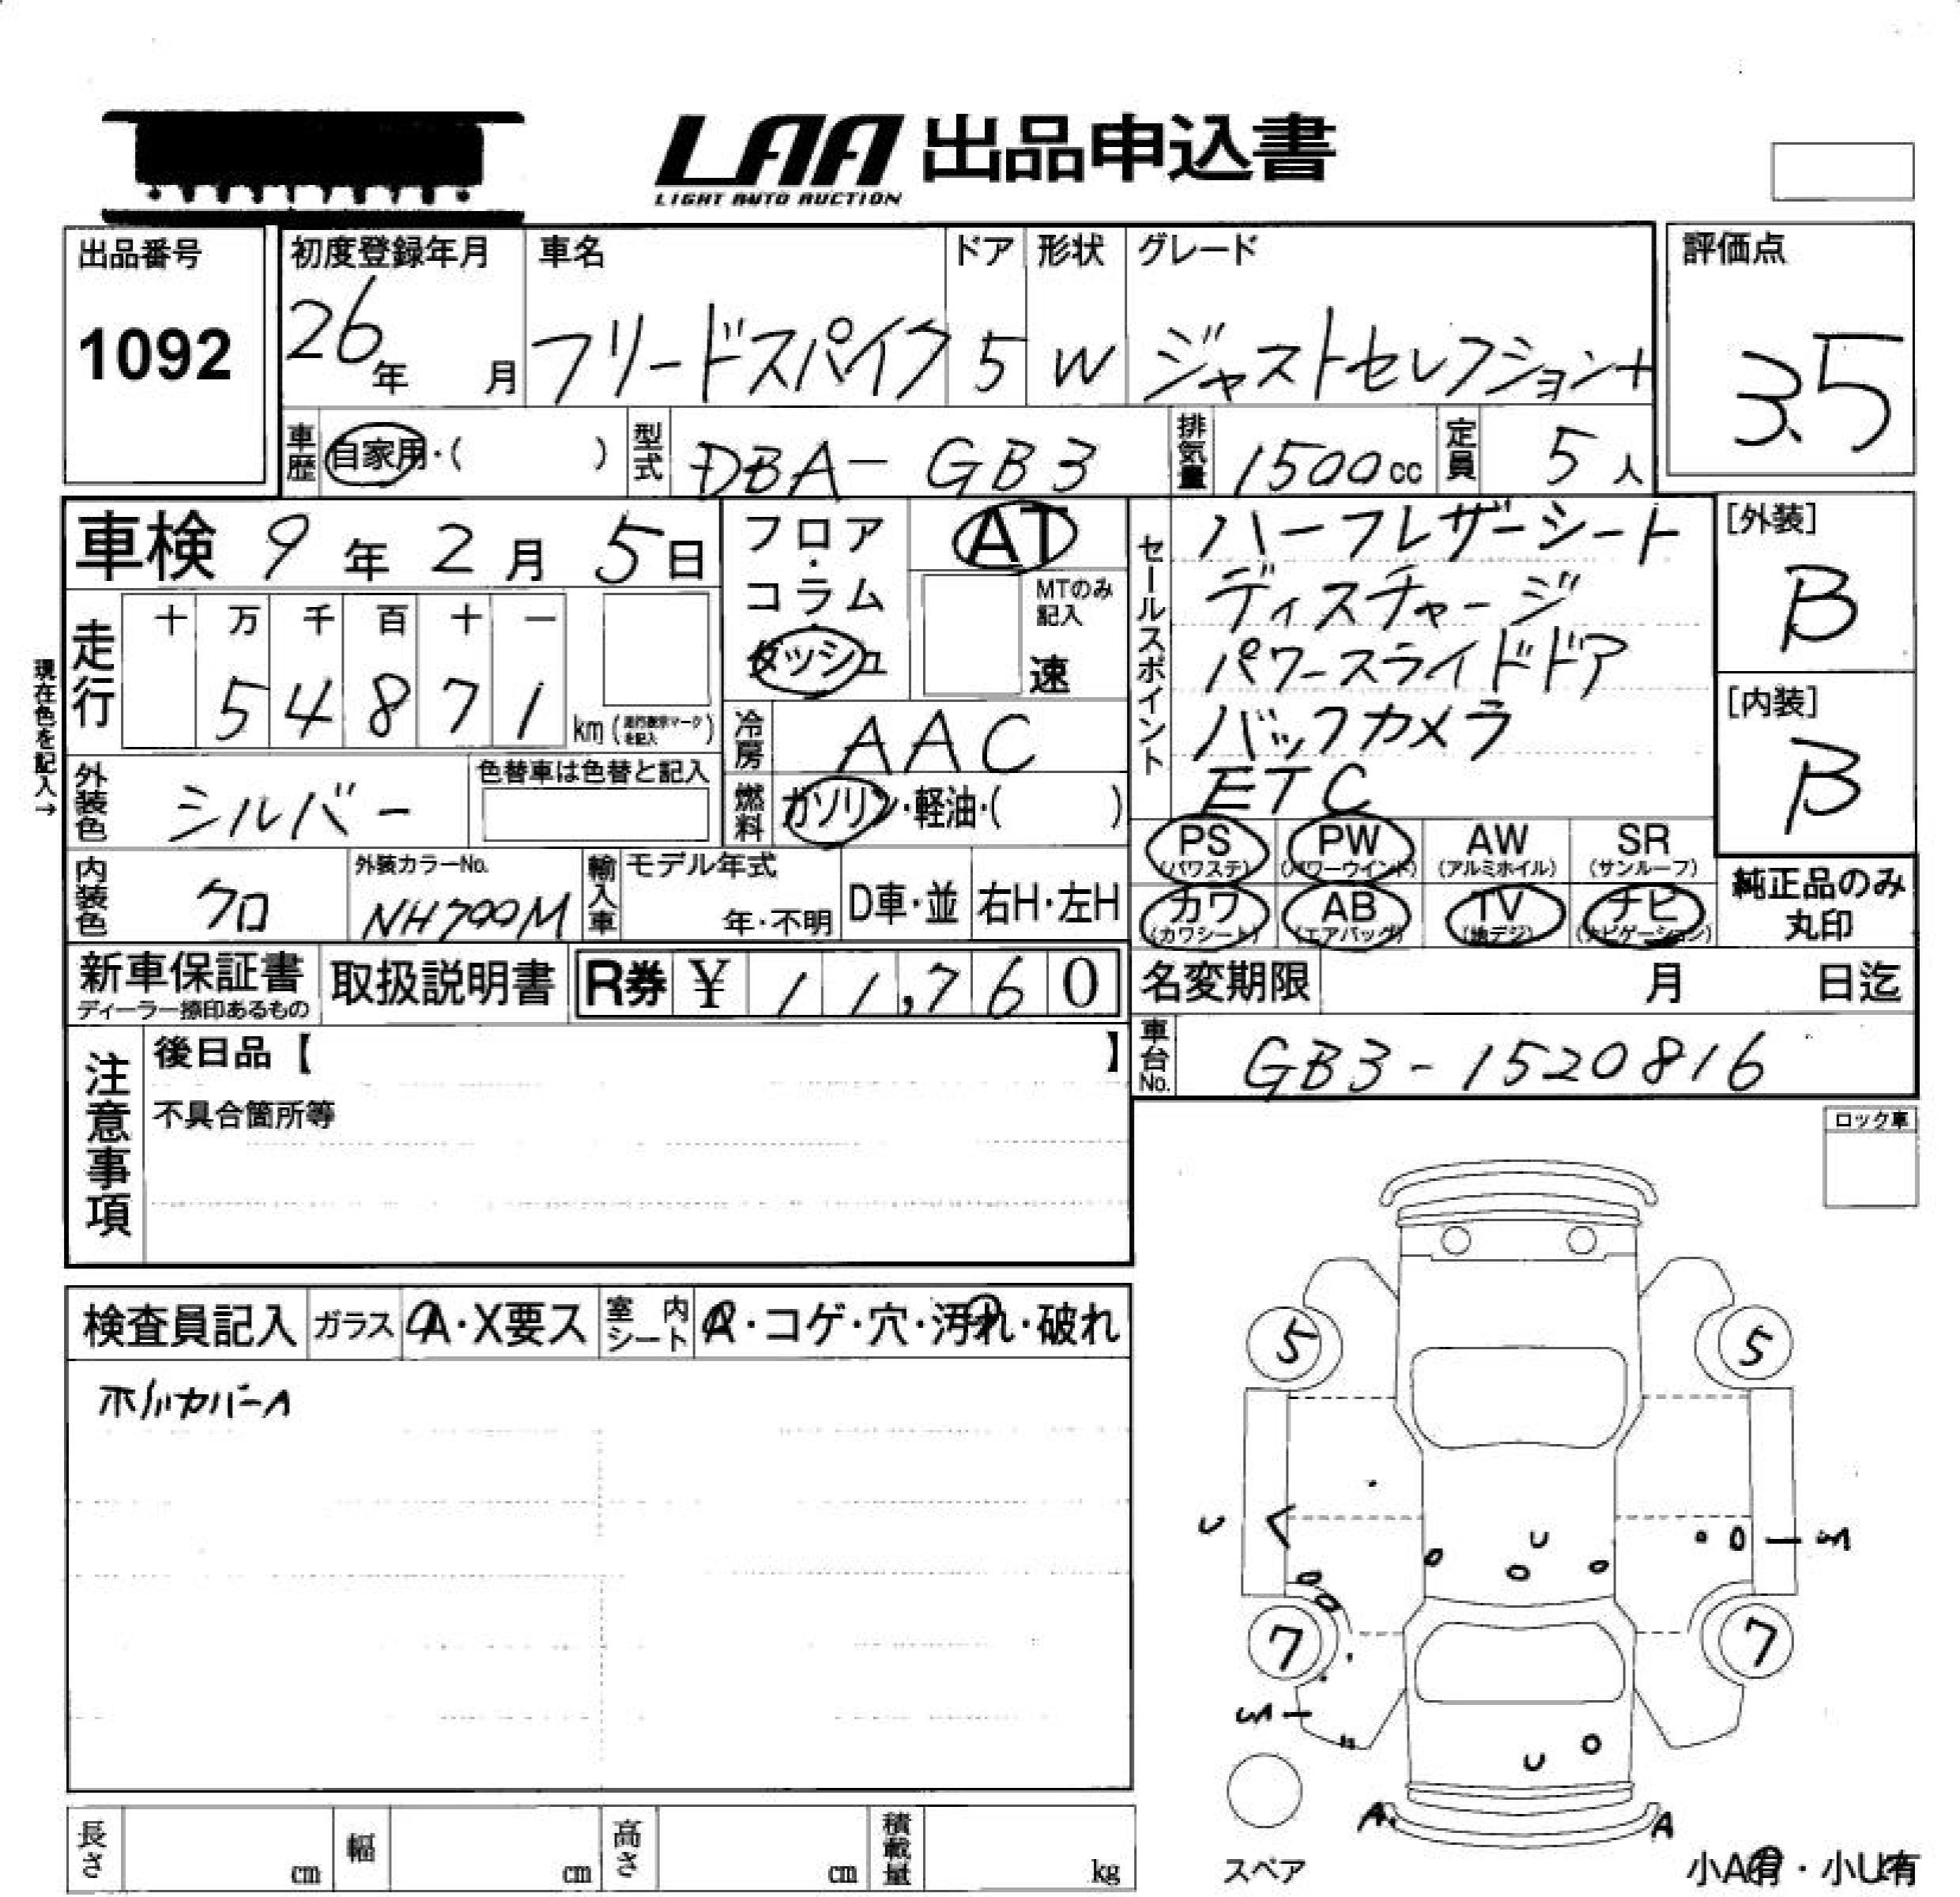 LAA 出品申込書
LIGHT AUTO AUCTION
出品番号
1092
初度登録年月
26年 月
車名
フリードスパイク
ドア
5
形状
W
グレード
ジャストセレクション+
評価点
3.5
車歴 自家用・( )
型式 DBA-GB3
排気量 1500cc
定員 5人
車検 9年2月5日
走行
十 万 千 百 十 一
5 4 8 7 1
km (走行表示マークを記入)
現在色を記入→
外装色 シルバー
色替車は色替と記入
内装色 クロ
外装カラーNo.
NH700M
フロア・コラム・ダッシュ
AT
MTのみ記入
速
冷房 AAC
燃料 ガソリン・軽油・( )
輸入車
モデル年式
年・不明
D車・並
右H・左H
セールスポイント
ハーフレザーシート
ディスチャージ
パワースライドドア
バックカメラ
ETC
PS (パワステ)
PW (パワーウインド)
AW (アルミホイル)
SR (サンルーフ)
カワ (カワシート)
AB (エアバッグ)
TV (地デジ)
ナビ (ナビゲーション)
[外装]
B
[内装]
B
純正品のみ丸印
新車保証書
ディーラー捺印あるもの
取扱説明書
R券 ¥ 11,760
名変期限 月 日迄
車台No. GB3-1520816
注意事項
後日品【 】
不具合箇所等
ロック車
検査員記入
ガラス A・X要ス
室内シート
・コゲ・穴・汚れ・破れ
ホイルカバーA
5
5
U
U
S
7
7
S
U
A
A
スペア
小A有・小U有
長さ cm
幅 cm
高さ cm
積載量 kg